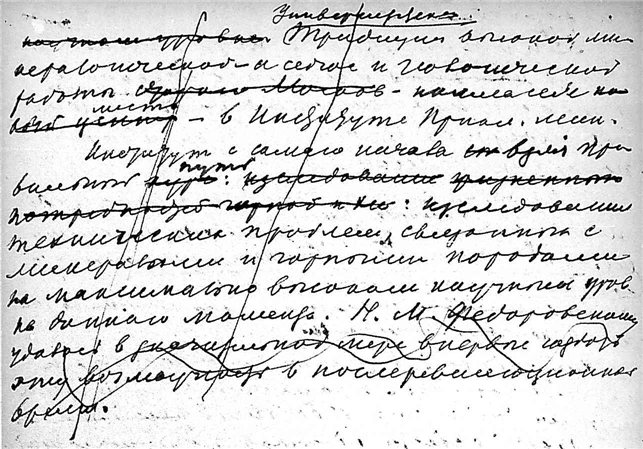 Университетская
научном уровне. Традиция высокой ми-
нералогической - а сейчас и геологической
работы старого Москов - нашла себе но-
вый центр место - в Институте Прикл. мин.
Институт с самого начала взял пра-
вильный путь: исследование
потребностей горной : исследования
технических проблем, связанных с
минералами и горными породами
на максимально высоком научном уров.
на данного момента. Н. М. Федоровскому
удалось в значительной мере впервые создать
эту возможность в послереволюционное
время.